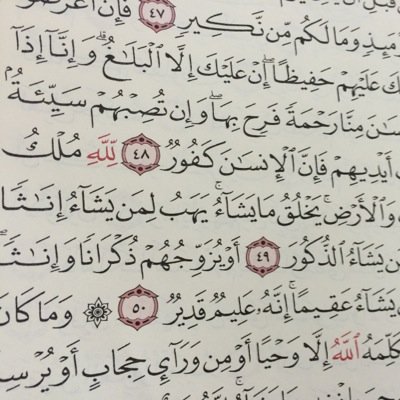 وَمَا لَكُم مِّن نَّكِيرٍ ٤٧ فَإِنْ أَعْرَضُوا
عَلَيْهِمْ حَفِيظًا إِنْ عَلَيْكَ إِلَّا الْبَلَٰغُ وَإِنَّا إِذَا
مِنَّا رَحْمَةً فَرِحَ بِهَا وَإِن تُصِبْهُمْ سَيِّئَةٌ
أَيْدِيهِمْ فَإِنَّ الْإِنسَٰنَ كَفُورٌ ٤٨ لِلَّهِ مُلْكُ
وَالْأَرْضِ يَخْلُقُ مَا يَشَاءُ يَهَبُ لِمَن يَشَاءُ إِنَٰثًا
يَشَاءُ الذُّكُورَ ٤٩ أَوْ يُزَوِّجُهُمْ ذُكْرَانًا وَإِنَٰثًا
يَشَاءُ عَقِيمًا إِنَّهُ عَلِيمٌ قَدِيرٌ ٥٠ ۞ وَمَا كَانَ
اللَّهُ إِلَّا وَحْيًا أَوْ مِن وَرَائِ حِجَابٍ أَوْ يُرْسِ